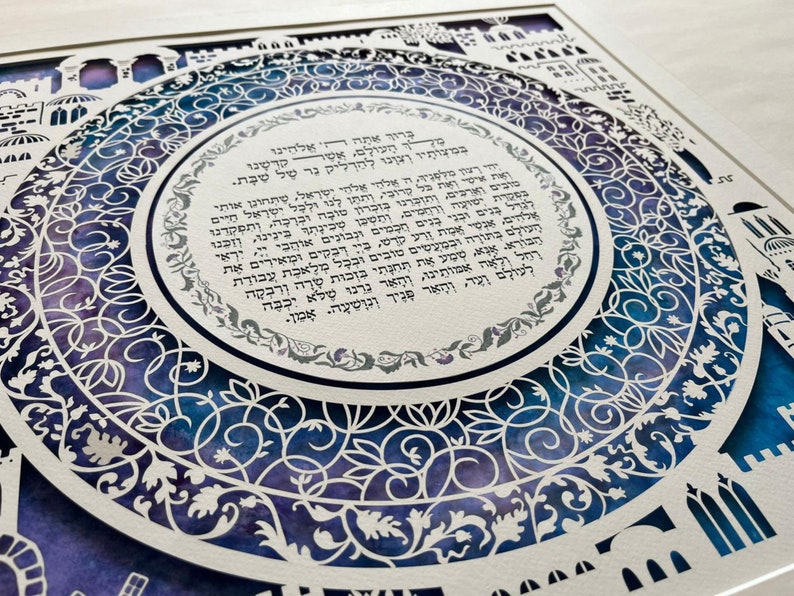 ברוך אתה ה׳ אלהינו
מלך העולם, אשר קדשנו
במצותיו וצונו להדליק נר של שבת.
יהי רצון מלפניך, ה׳ אלהי ישראל, שתחונן אותי
ואת אישי ואת כל קרובי, ותתן לנו ולכל ישראל חיים
טובים וארוכים, ותזכרנו בזכרון טובה וברכה, ותפקדנו
בפקודת ישועה ורחמים, ותשכן שכינתך בינינו, וזכנו
לגדל בנים ובני בנים חכמים ונבונים אוהבי ה׳ יראי
אלהים, אנשי אמת זרע קדש, בה׳ דבקים ומאירים את
העולם בתורה ובמעשים טובים ובכל מלאכת עבודת
הבורא. אנא שמע את תחנתי בזכות שרה ורבקה
רחל ולאה אמותינו, והאר נרנו שלא יכבה
לעולם ועד, והאר פניך ונושעה. אמן.